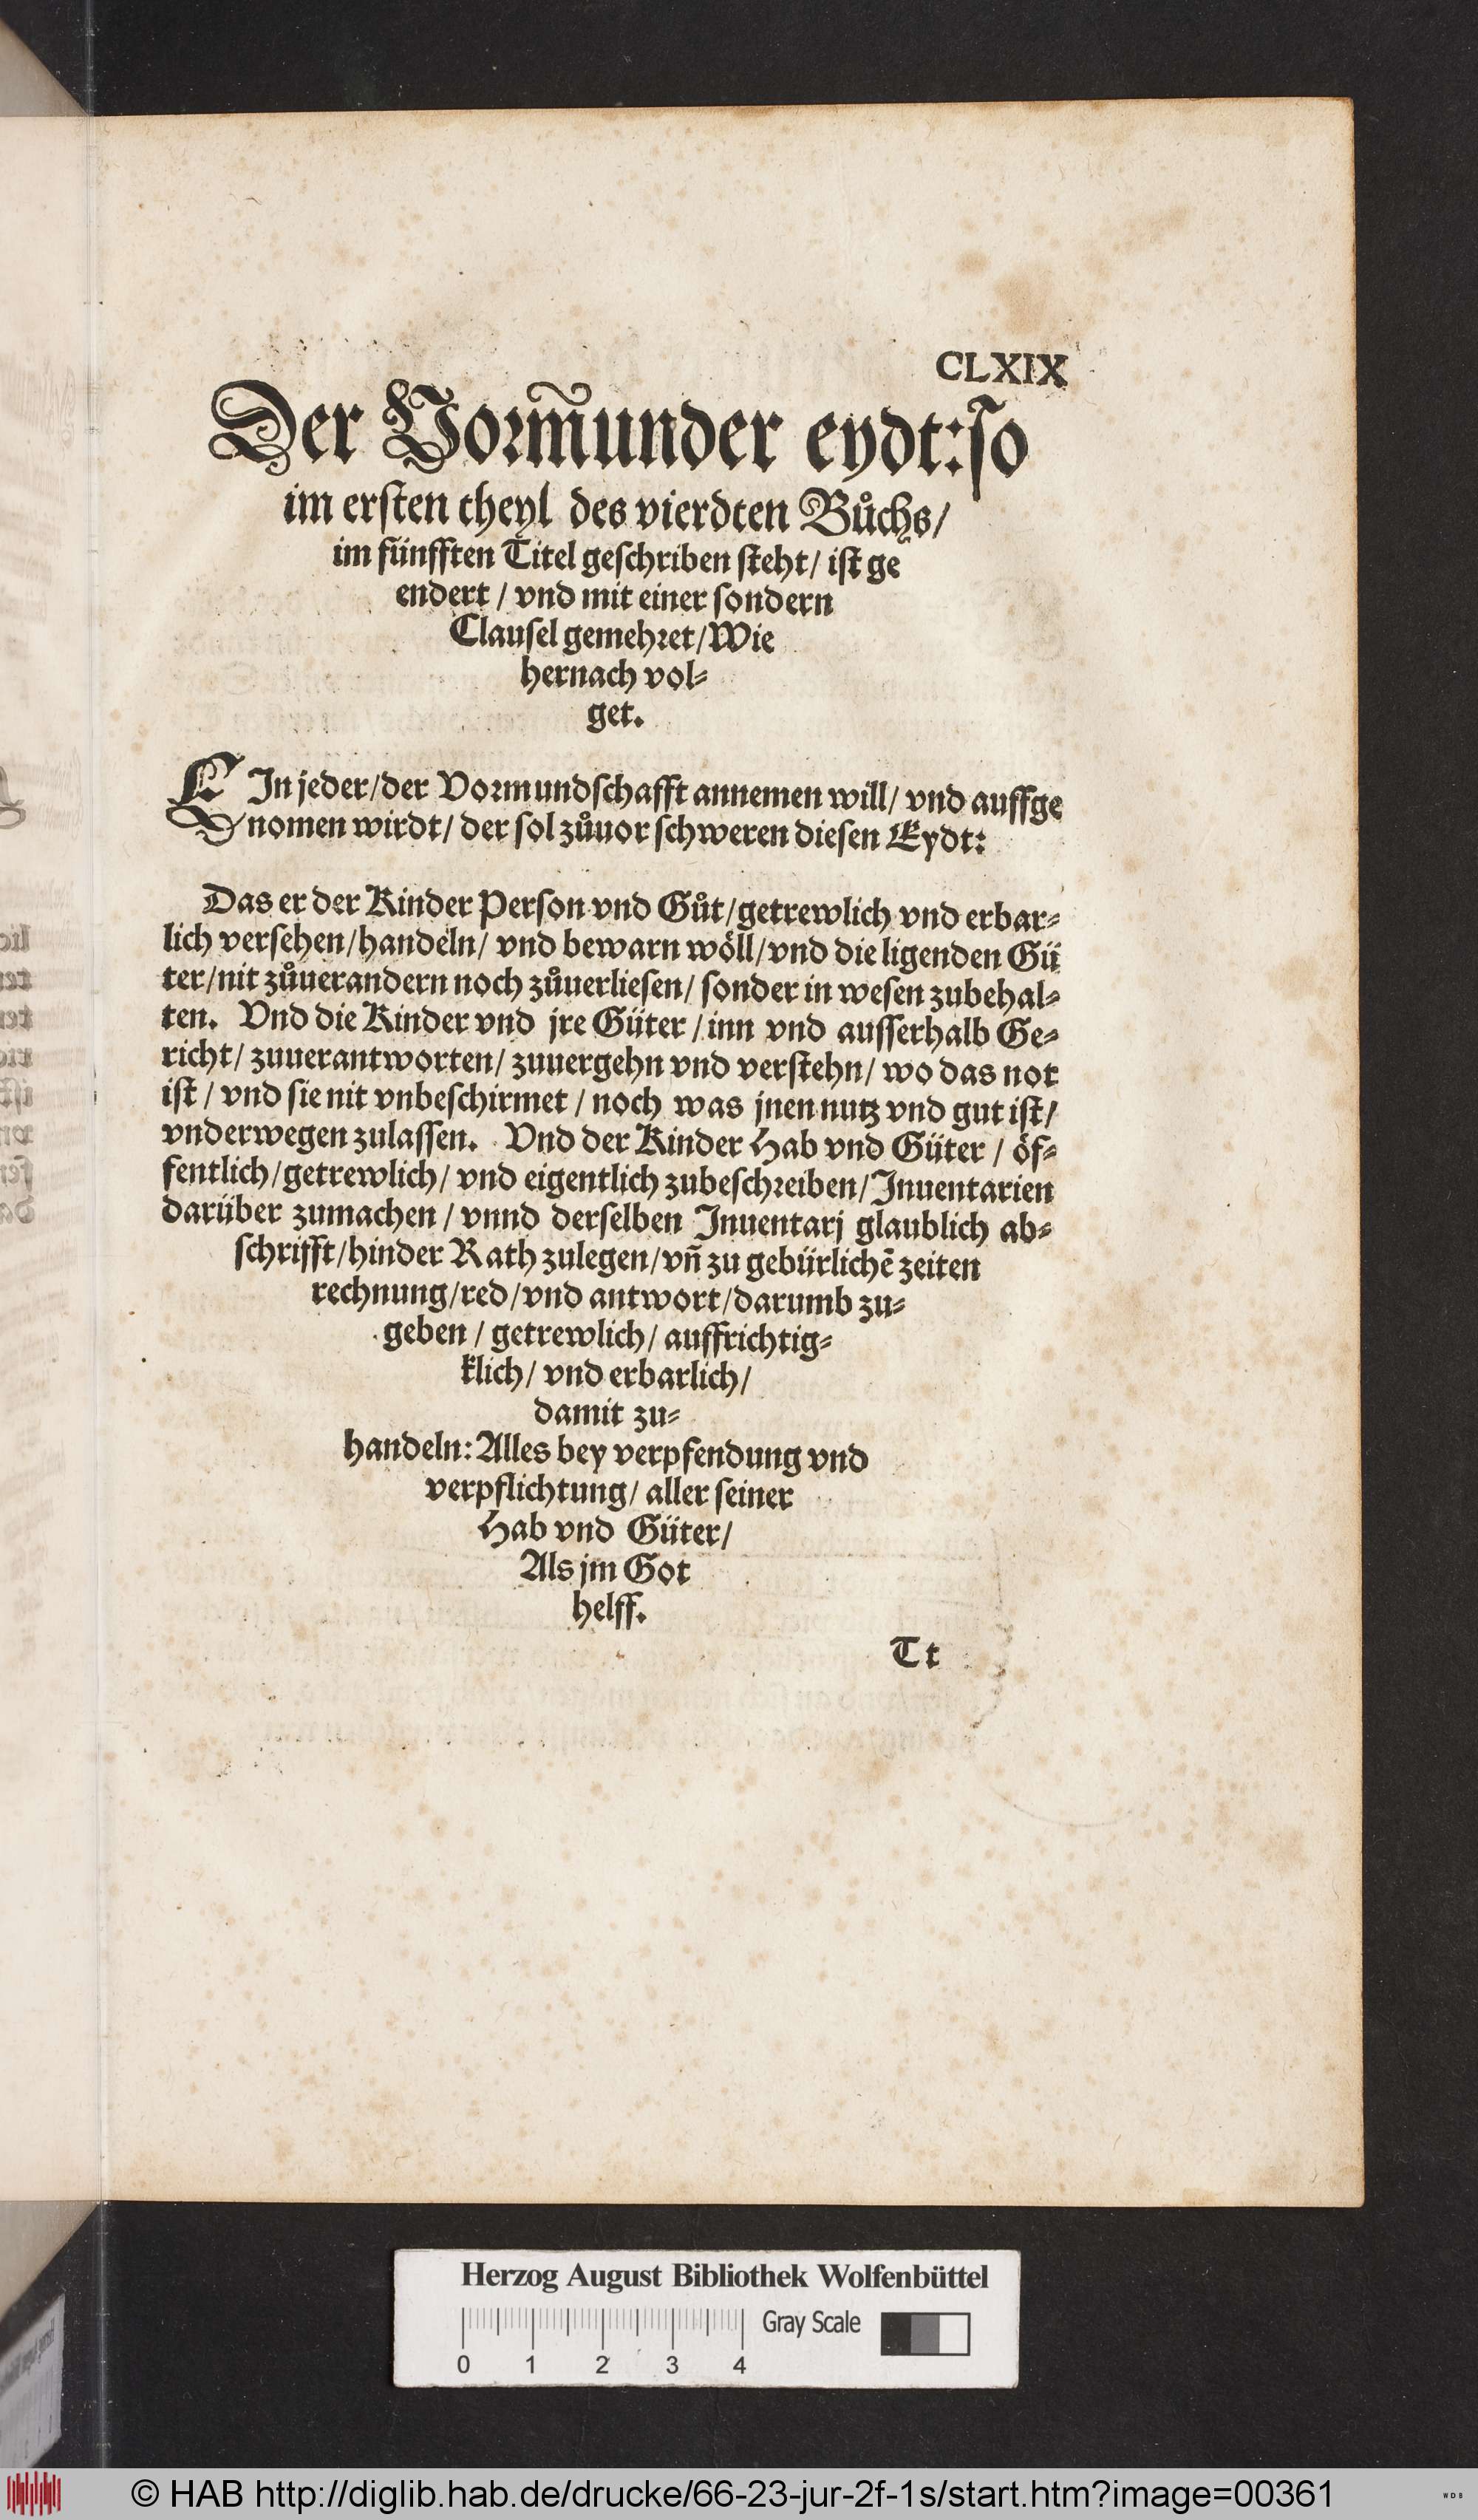 CLXIX
Der Vorm̃under eydt: so
im ersten theyl des vierdten Bůchs/
im fünfften Titel geschriben steht/ ist ge
endert / vnd mit einer sondern
Clausel gemehret/ Wie
hernach vol⸗
get.
EIn jeder/ der Vormundschafft annemen will/ vnd auffge
nomen wirdt/ der sol zůuor schweren diesen Eydt:
Das er der Kinder Person vnd Gůt/ getrewlich vnd erbar⸗
lich versehen/ handeln/ vnd bewarn wöll/ vnd die ligenden Gü
ter/ nit zůuerandern noch zůuerliesen/ sonder in wesen zubehal⸗
ten. Vnd die Kinder vnd jre Güter / inn vnd ausserhalb Ge⸗
richt/ zuuerantworten/ zuuergehn vnd verstehn/ wo das not
ist / vnd sie nit vnbeschirmet / noch was jnen nutz vnd gut ist/
vnderwegen zulassen. Vnd der Kinder Hab vnd Güter / öf⸗
fentlich/ getrewlich/ vnd eigentlich zubeschreiben/ Inuentarien
darüber zumachen / vnnd derselben Inuentarj glaublich ab⸗
schrifft/ hinder Rath zulegen/ vñ zu gebürlichẽ zeiten
rechnung/ red/ vnd antwort/ darumb zu⸗
geben / getrewlich/ auffrichtig⸗
klich/ vnd erbarlich/
damit zu⸗
handeln: Alles bey verpfendung vnd
verpflichtung/ aller seiner
Hab vnd Güter/
Als jm Got
helff.
Tt
Herzog August Bibliothek Wolfenbüttel
Gray Scale
0 1 2 3 4
© HAB http://diglib.hab.de/drucke/66-23-jur-2f-1s/start.htm?image=00361
WDB